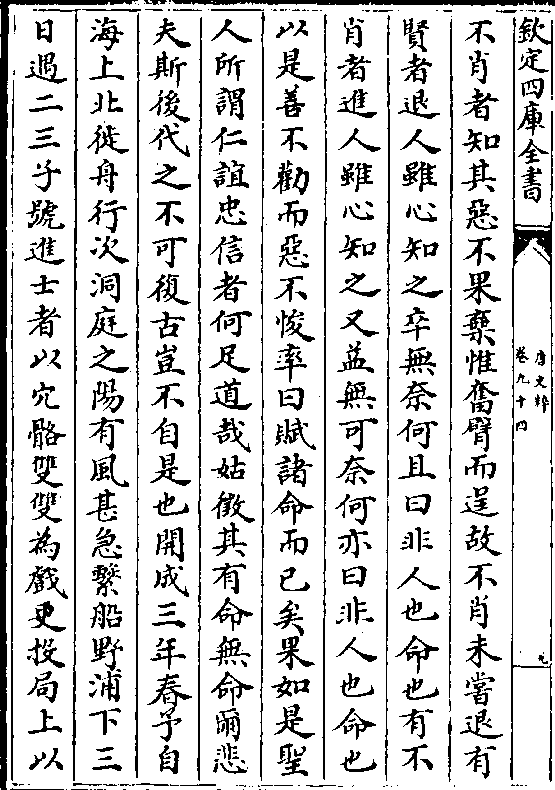 欽定四庫全書
唐文粹
卷九十四
九
不肖者知其惡不果棄惟奮臂而逞故不肖未嘗退有
賢者退人雖心知之卒無奈何且曰非人也命也有不
肖者進人雖心知之又益無可奈何亦曰非人也命也
以是善不勸而惡不悛率曰賦諸命而已矣果如是聖
人所謂仁誼忠信者何足道哉姑徵其有命無命爾悲
夫斯後代之不可復古豈不自是也開成三年春予自
海上北徙舟行次洞庭之陽有風甚急繫船野浦下三
日遇二三子號進士者以穴骼雙雙為戲更投局上以